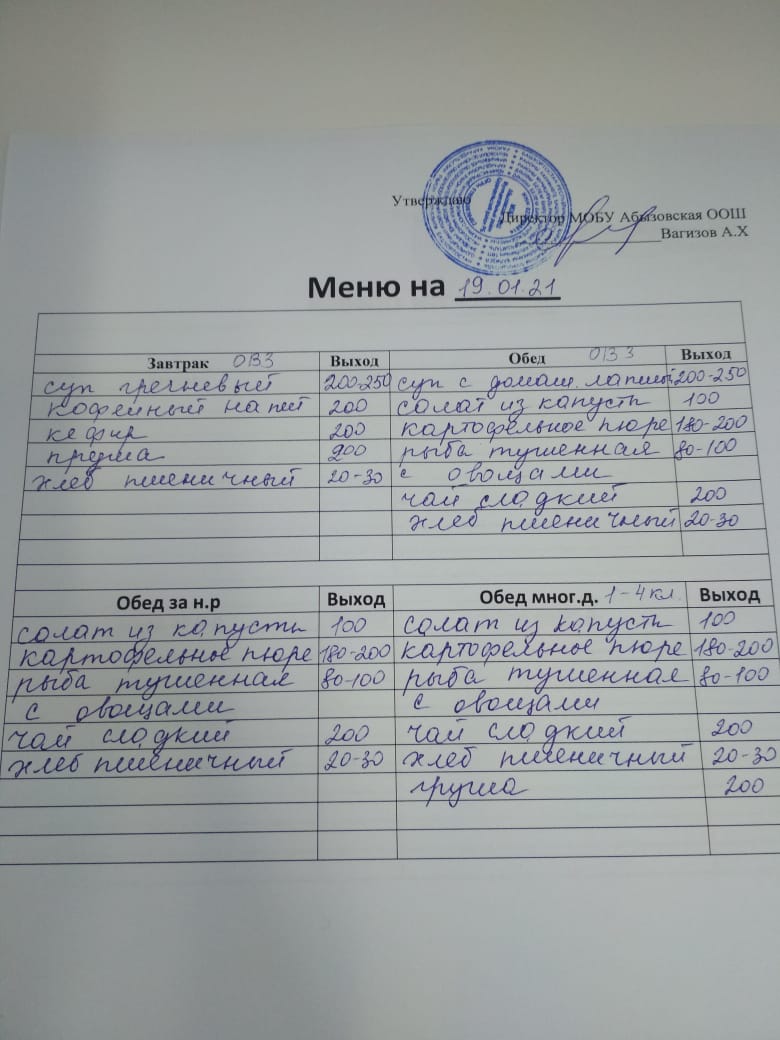 Утверждаю
Директор МОБУ Абызовская ООШ
Вагизов А.Х
Меню на 19.01.21
Завтрак ОВЗ Выход Обед ОВЗ Выход
суп гречневый 200-250 суп с домаш. лапшой 200-250
кофейный напит 200 салат из капусты 100
кефир 200 картофельное пюре 180-200
груша 200 рыба тушенная 80-100
хлеб пшеничный 20-30 с овощами
чай сладкий 200
хлеб пшеничный 20-30
Обед за н.р Выход Обед мног.д. 1-4 кл. Выход
салат из капусты 100 салат из капусты 100
картофельное пюре 180-200 картофельное пюре 180-200
рыба тушенная 80-100 рыба тушенная 80-100
с овощами с овощами
чай сладкий 200 чай сладкий 200
хлеб пшеничный 20-30 хлеб пшеничный 20-30
груша 200